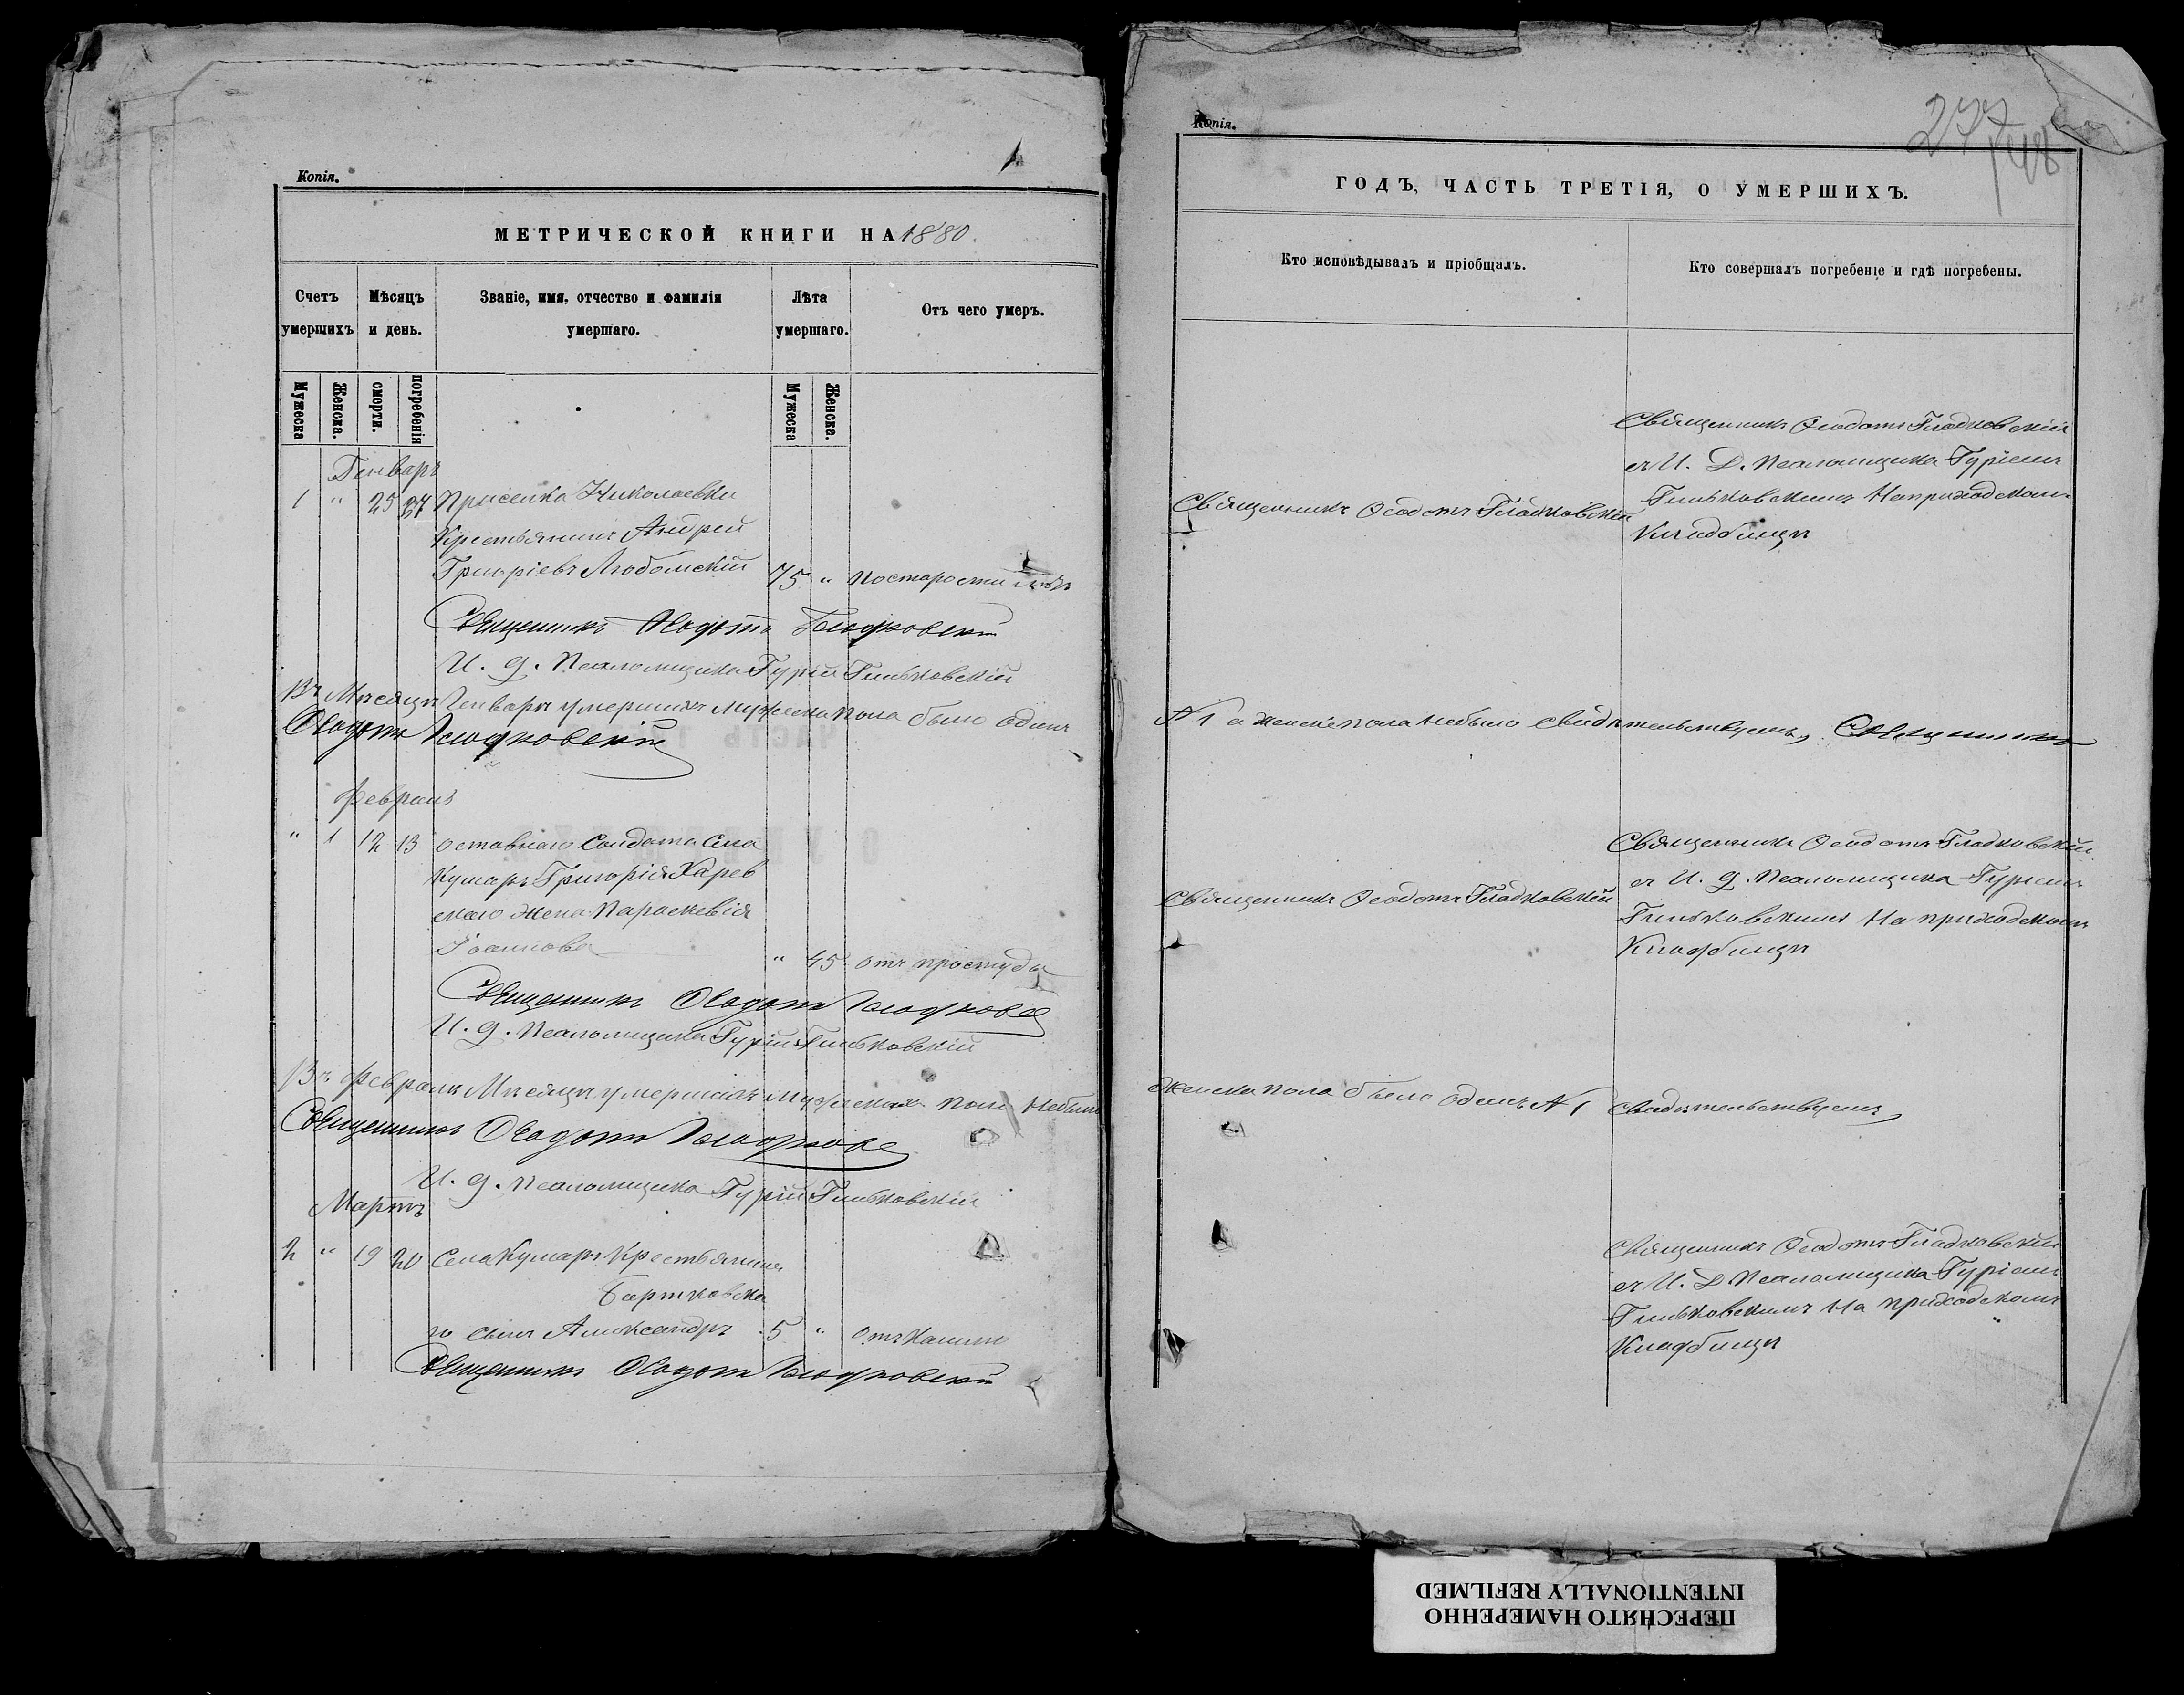 Копія.
МЕТРИЧЕСКОЙ КНИГИ НА 1880.
Счетъ умершихъ
Мѣсяцъ и день.
Званіе, имя, отчество и фамилія умершаго.
Лѣта умершаго.
Отъ чего умеръ.
Мужеска
Женска.
смерти.
погребенія
Мужеска
Женска.
Генварь
1 " 25 27 Присенка Николаевки
Крестьянинъ Андрей
Григоріевъ Любомскій 75 " По старости лѣтъ
Священникъ Ѳеодотъ Гладковскій
И. д. Псаломщика Гурій Гиньковскій
Въ Мѣсяцѣ Генварѣ умершихъ мужеска пола было одинъ
Ѳеодотъ Гладковскій
Февраль
" 1 12 13 Оставнаго Солдата Села
Кумаръ Григорія Карев
скаго жена Параскевія
Іоаннова " 45 Отъ простуды
Священникъ Ѳеодотъ Гладковс
И. д. Псаломщика Гурій Гиньковскій
Въ Февралѣ Мѣсяцѣ умершихъ мужеска пола небыло
Священникъ Ѳеодотъ Гладковс
И. д. Псаломщика Гурій Гиньковскій
Мартъ
2 " 19 20 Села Кумаръ Крестьянина
Бартковска
го сынъ Александръ 5 " Отъ кашлю
Священникъ Ѳеодотъ Гладковскій
Копія.
277
148
ГОДЪ, ЧАСТЬ ТРЕТІЯ, О УМЕРШИХЪ.
Кто исповѣдывалъ и пріобщалъ.
Кто совершалъ погребеніе и гдѣ погребены.
Священникъ Ѳеодотъ Гладковскій
Священникъ Ѳеодотъ Гладковскій
съ И. Д. Псаломщика Гуріемъ
Гиньковскимъ На приходскомъ
Кладбищѣ
N 1 а женска пола небыло свидѣтельствуемъ, Священникъ
Священникъ Ѳеодотъ Гладковскій
Священникъ Ѳеодотъ Гладковскій
съ И. д. Псаломщика Гуріемъ
Гиньковскимъ На приходскомъ
Кладбищѣ
Женска пола было одинъ N 1 свидѣтельствуемъ,
Священникъ Ѳеодотъ Гладковскій
съ И. Д. Псаломщика Гуріемъ
Гиньковскимъ На приходскомъ
Кладбищѣ
ПЕРЕСНЯТО НАМЕРЕННО
INTENTIONALLY REFILMED